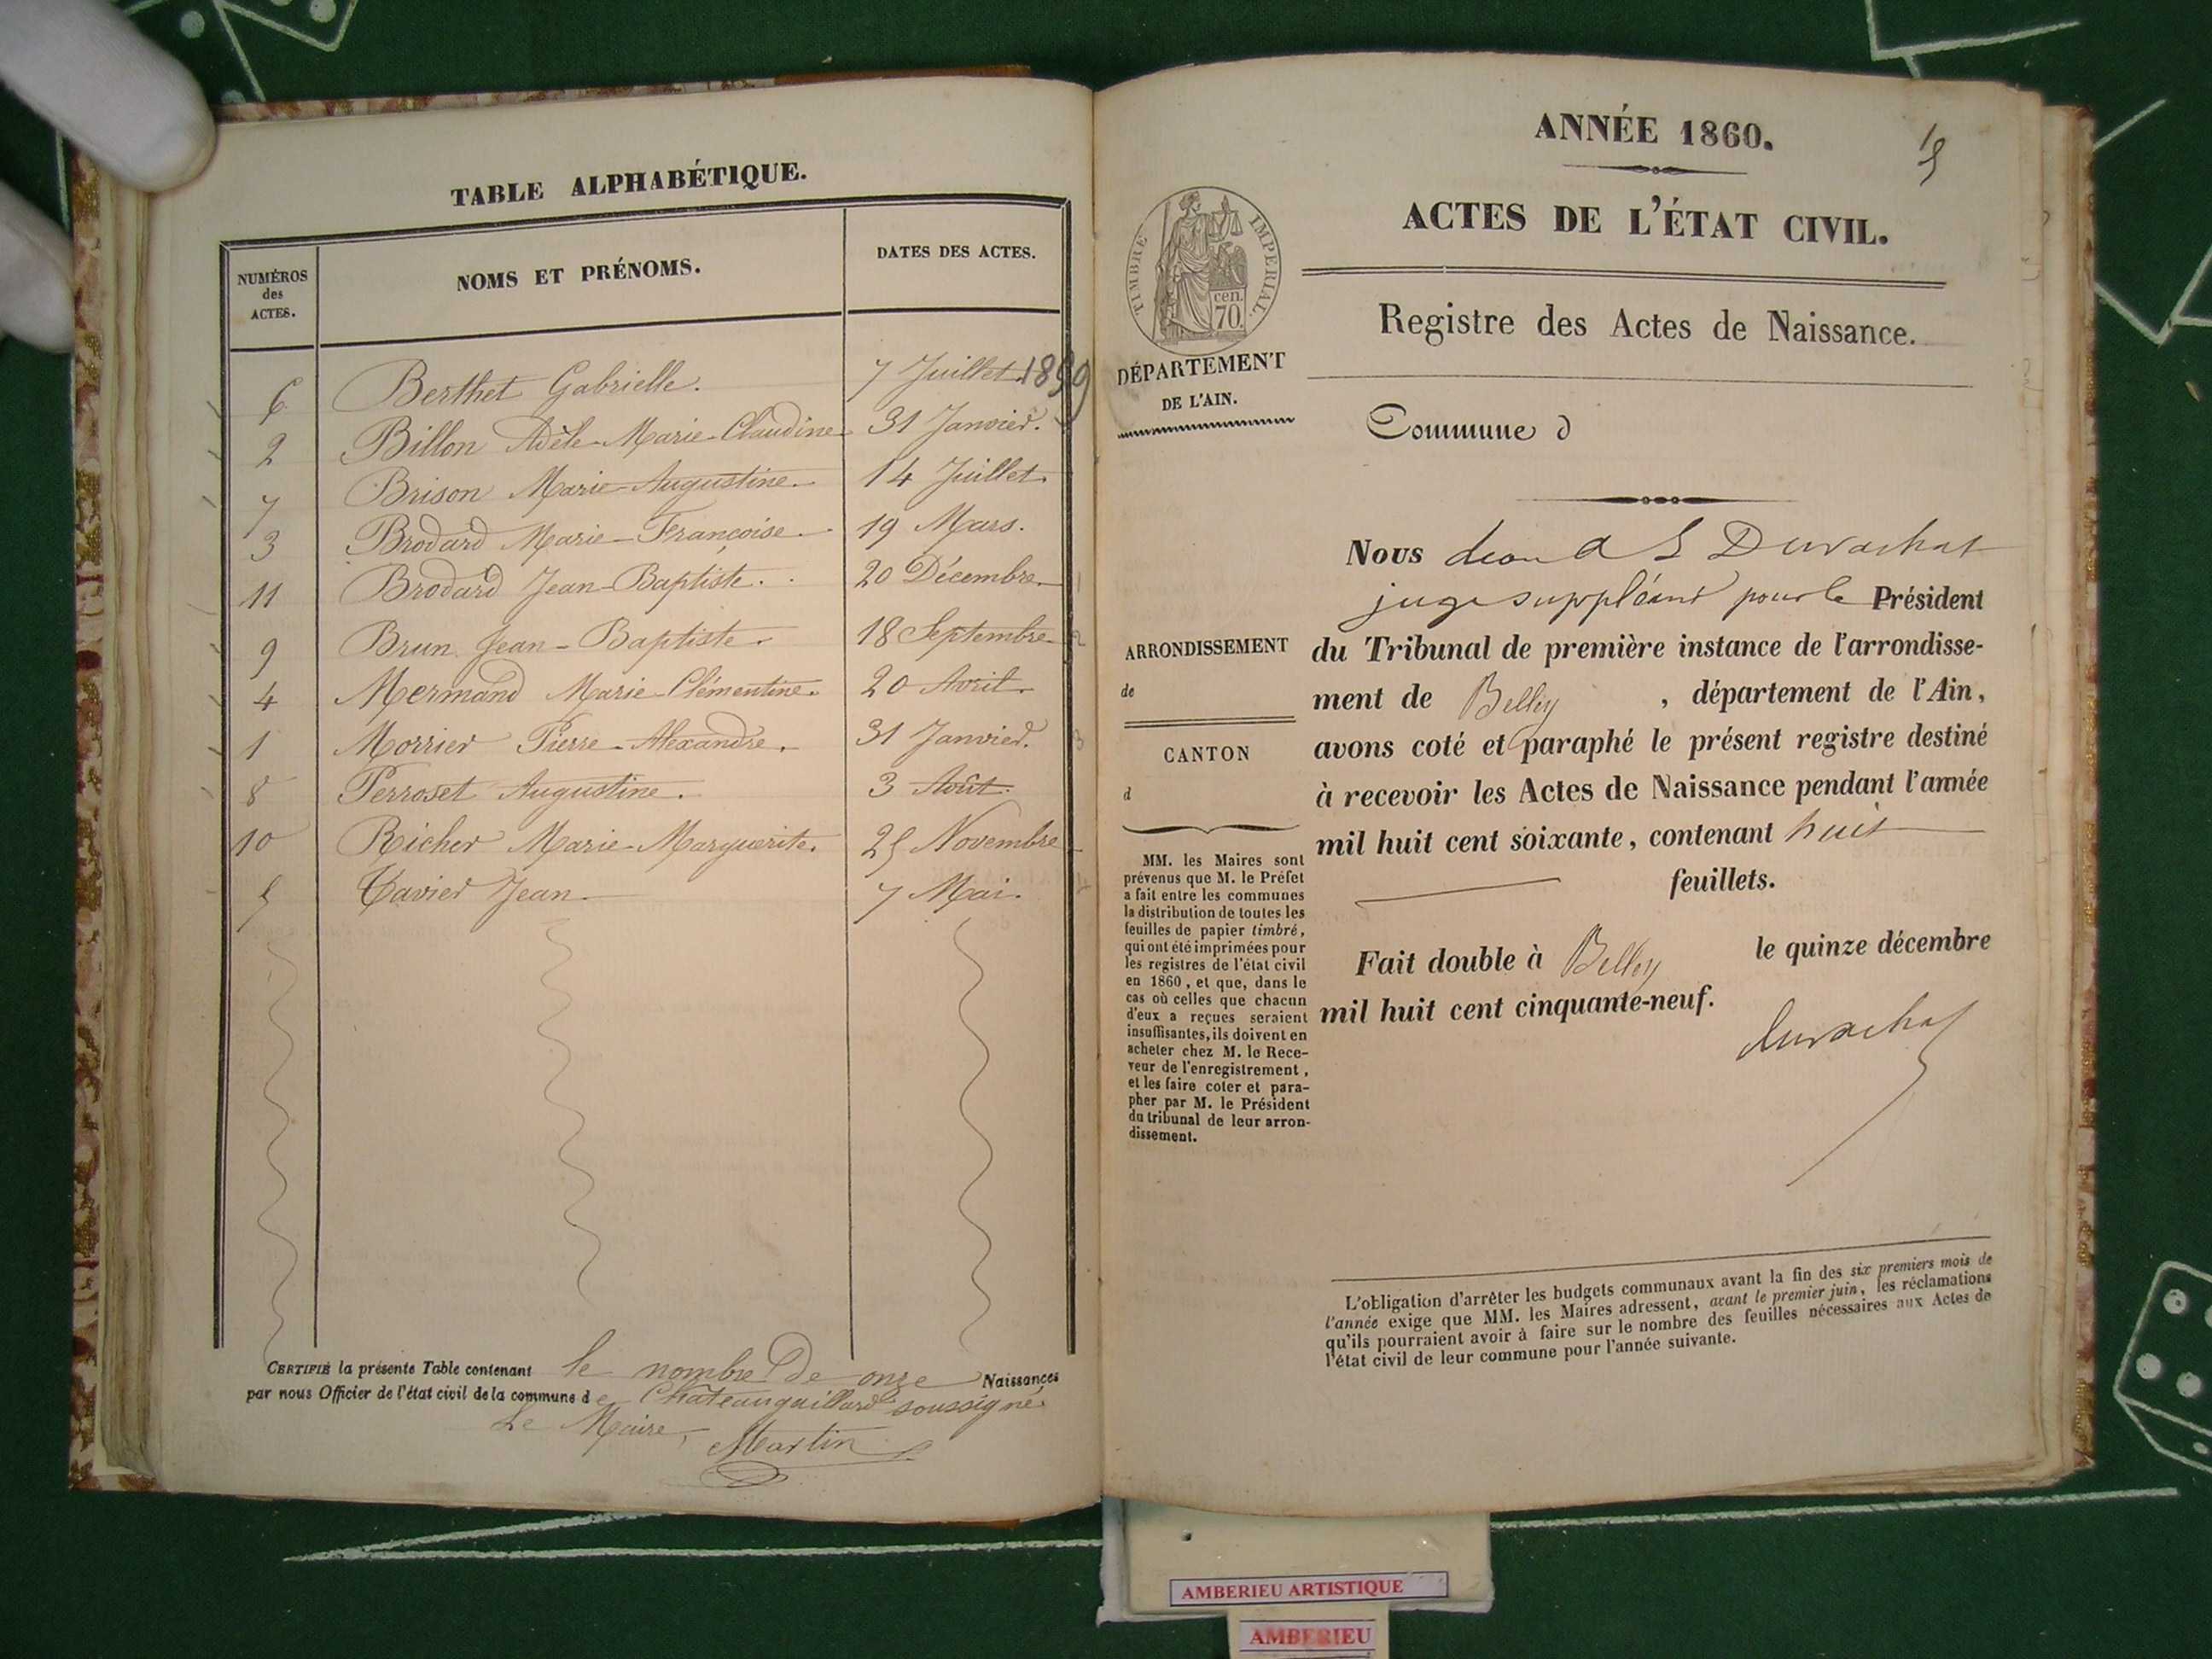 TABLE ALPHABÉTIQUE.
NUMÉROS
des
ACTES.
NOMS ET PRÉNOMS.
DATES DES ACTES.
6 Berthet Gabrielle. 7 Juillet. 1859
2 Billon Adèle-Marie-Claudine 31 Janvier.
7 Brison Marie-Augustine. 14 Juillet.
3 Brodard Marie-Françoise. 19 Mars.
11 Brodard Jean-Baptiste. 20 Décembre.
9 Brun Jean-Baptiste. 18 Septembre
4 Mermand Marie-Clémentine. 20 Avril.
1 Morrier Pierre-Alexandre. 31 Janvier.
8 Perroset Augustine. 3 Août.
10 Richer Marie-Marguerite. 25 Novembre
5 Tavier Jean 7 Mai.
CERTIFIÉ la présente Table contenant le nombre de onze Naissances
par nous Officier de l'état civil de la commune de Châteaugaillard soussigné.
Le Maire,
Martin
ANNÉE 1860.
ACTES DE L'ÉTAT CIVIL.
TIMBRE IMPERIAL.
cen.
70.
Registre des Actes de Naissance.
DÉPARTEMENT
DE L'AIN.
Commune d
Nous Duvachat
juge suppléant pour le Président
ARRONDISSEMENT
de
du Tribunal de première instance de l'arrondisse-
ment de Belley , département de l'Ain,
CANTON
d
avons coté et paraphé le présent registre destiné
à recevoir les Actes de Naissance pendant l'année
mil huit cent soixante, contenant huit
feuillets.
MM. les Maires sont
prévenus que M. le Préfet
a fait entre les communes
la distribution de toutes les
feuilles de papier timbré,
qui ont été imprimées pour
les registres de l'état civil
en 1860, et que, dans le
cas où celles que chacun
d'eux a reçues seraient
insuffisantes, ils doivent en
acheter chez M. le Rece-
veur de l'enregistrement,
et les faire coter et para-
pher par M. le Président
du tribunal de leur arron-
dissement.
Fait double à Belley le quinze décembre
mil huit cent cinquante-neuf.
Duvachat
L'obligation d'arrêter les budgets communaux avant la fin des six premiers mois de
l'année exige que MM. les Maires adressent, avant le premier juin, les réclamations
qu'ils pourraient avoir à faire sur le nombre des feuilles nécessaires aux Actes de
l'état civil de leur commune pour l'année suivante.
AMBERIEU ARTISTIQUE
AMBERIEU